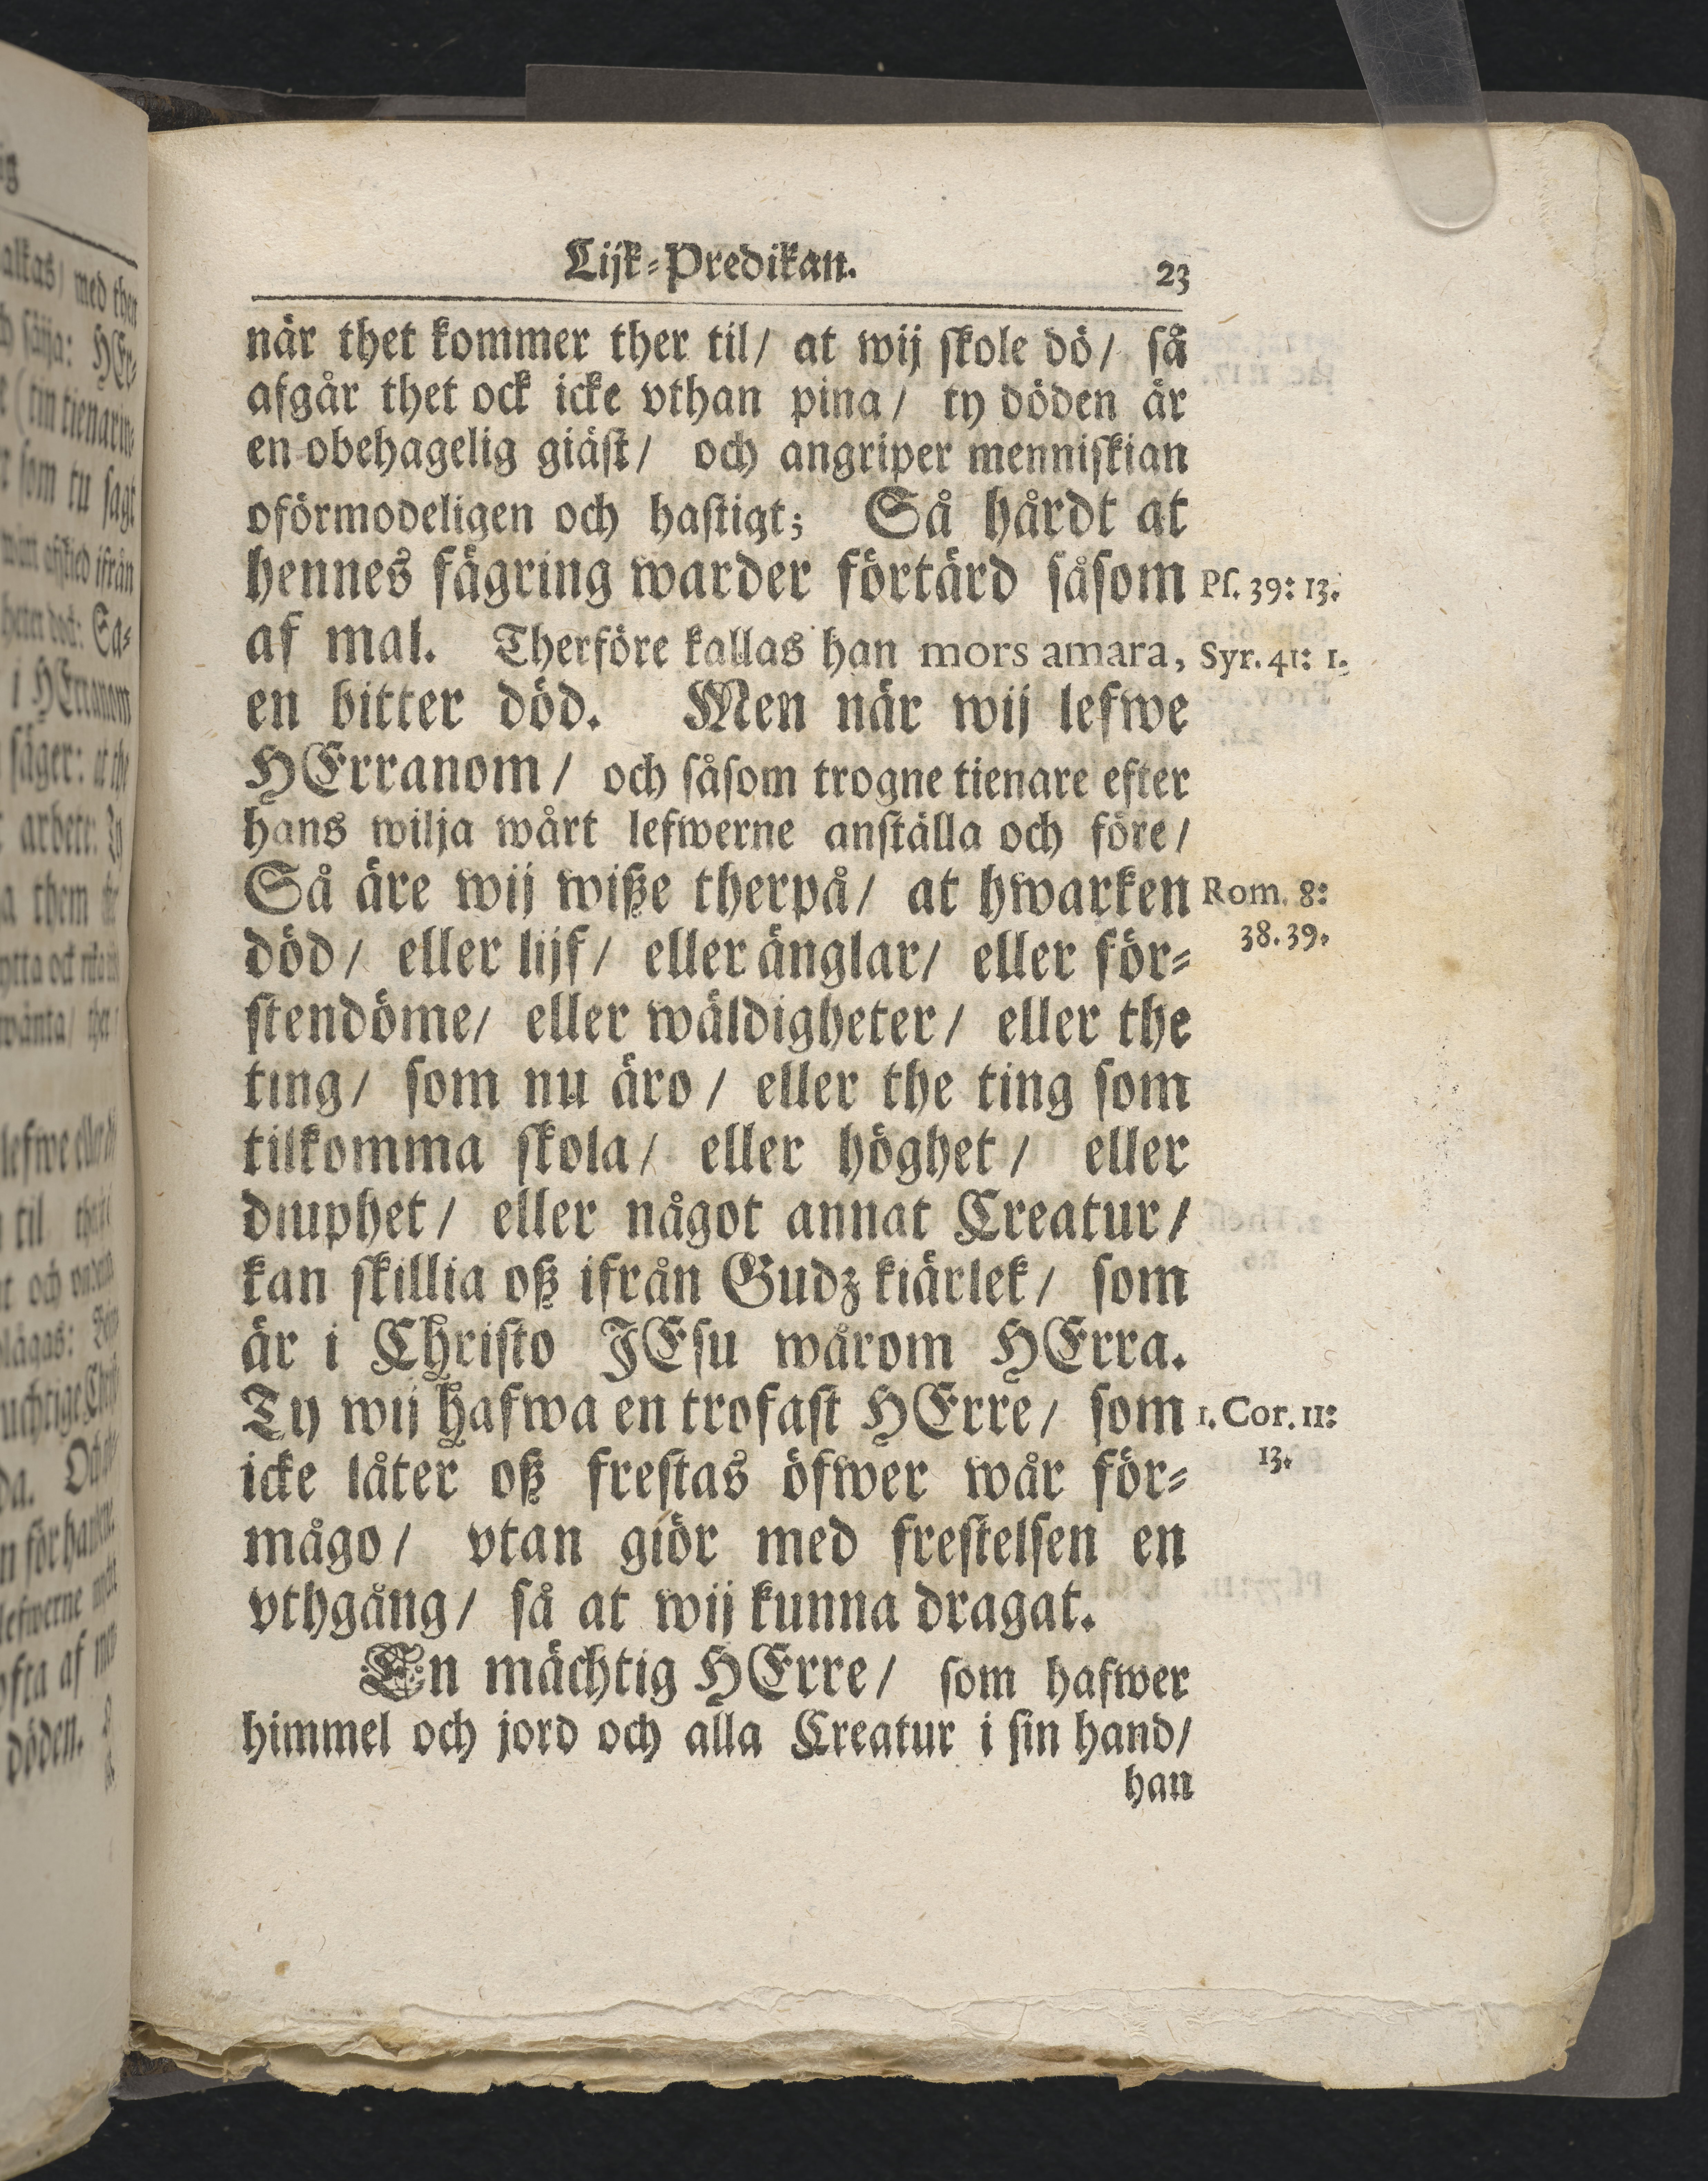 Lijk-Predikan. 23
når thet kommer ther til/ at wij skole dö/ så
afgår thet ock icke vthan pina/ ty döden är
en obehagelig giäst/ och angriper menniskian
oförmodeligen och hastigt; Så hårdt at
hennes fägring warder förtärd såsom Ps. 39: 13.
af mal. Therföre kallas han mors amara, Syr. 41: 1.
en bitter död. Men när wij lefwe
HErranom/ och såsom trogne tienare efter
hans wilja wårt lefwerne anställa och före/
Så äre wij wiße therpå/ at hwarken Rom. 8:
död/ eller lijf/ eller änglar/ eller för- 38. 39.
stendöme/ eller wäldigheter/ eller the
ting/ som nu äro/ eller the ting som
tilkomma skola/ eller höghet/ eller
diuphet/ eller något annat Creatur/
kan skillia oß ifrån Gudz kiärlek/ som
är i Christo JEsu wårom HErra.
Ty wij hafwa en trofast HErre/ som 1. Cor. 11:
icke låter oß frestas öfwer wår för- 13.
mågo/ vtan giör med frestelsen en
vthgång/ så at wij kunna dragat.
En mächtig HErre/ som hafwer
himmel och jord och alla Creatur i sin hand/
han